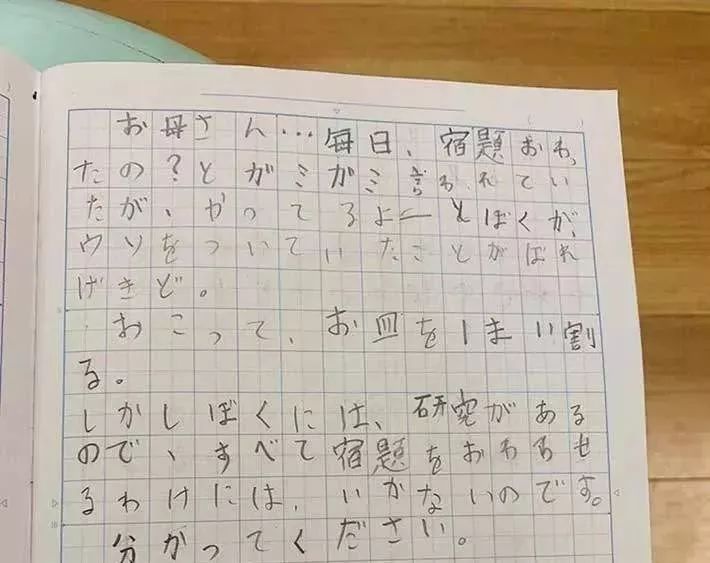 お母さん…毎日、宿題おわっ
たの？とガミガミ言われてい
たが、やってるよーとぼくが、
ウソをついていたことがばれ
げきど。
おこって、お皿を1まい割
る。
しかしぼくには、研究がある
ので、すべて宿題をおわらせ
るわけには、いかないのです。
分かってください。